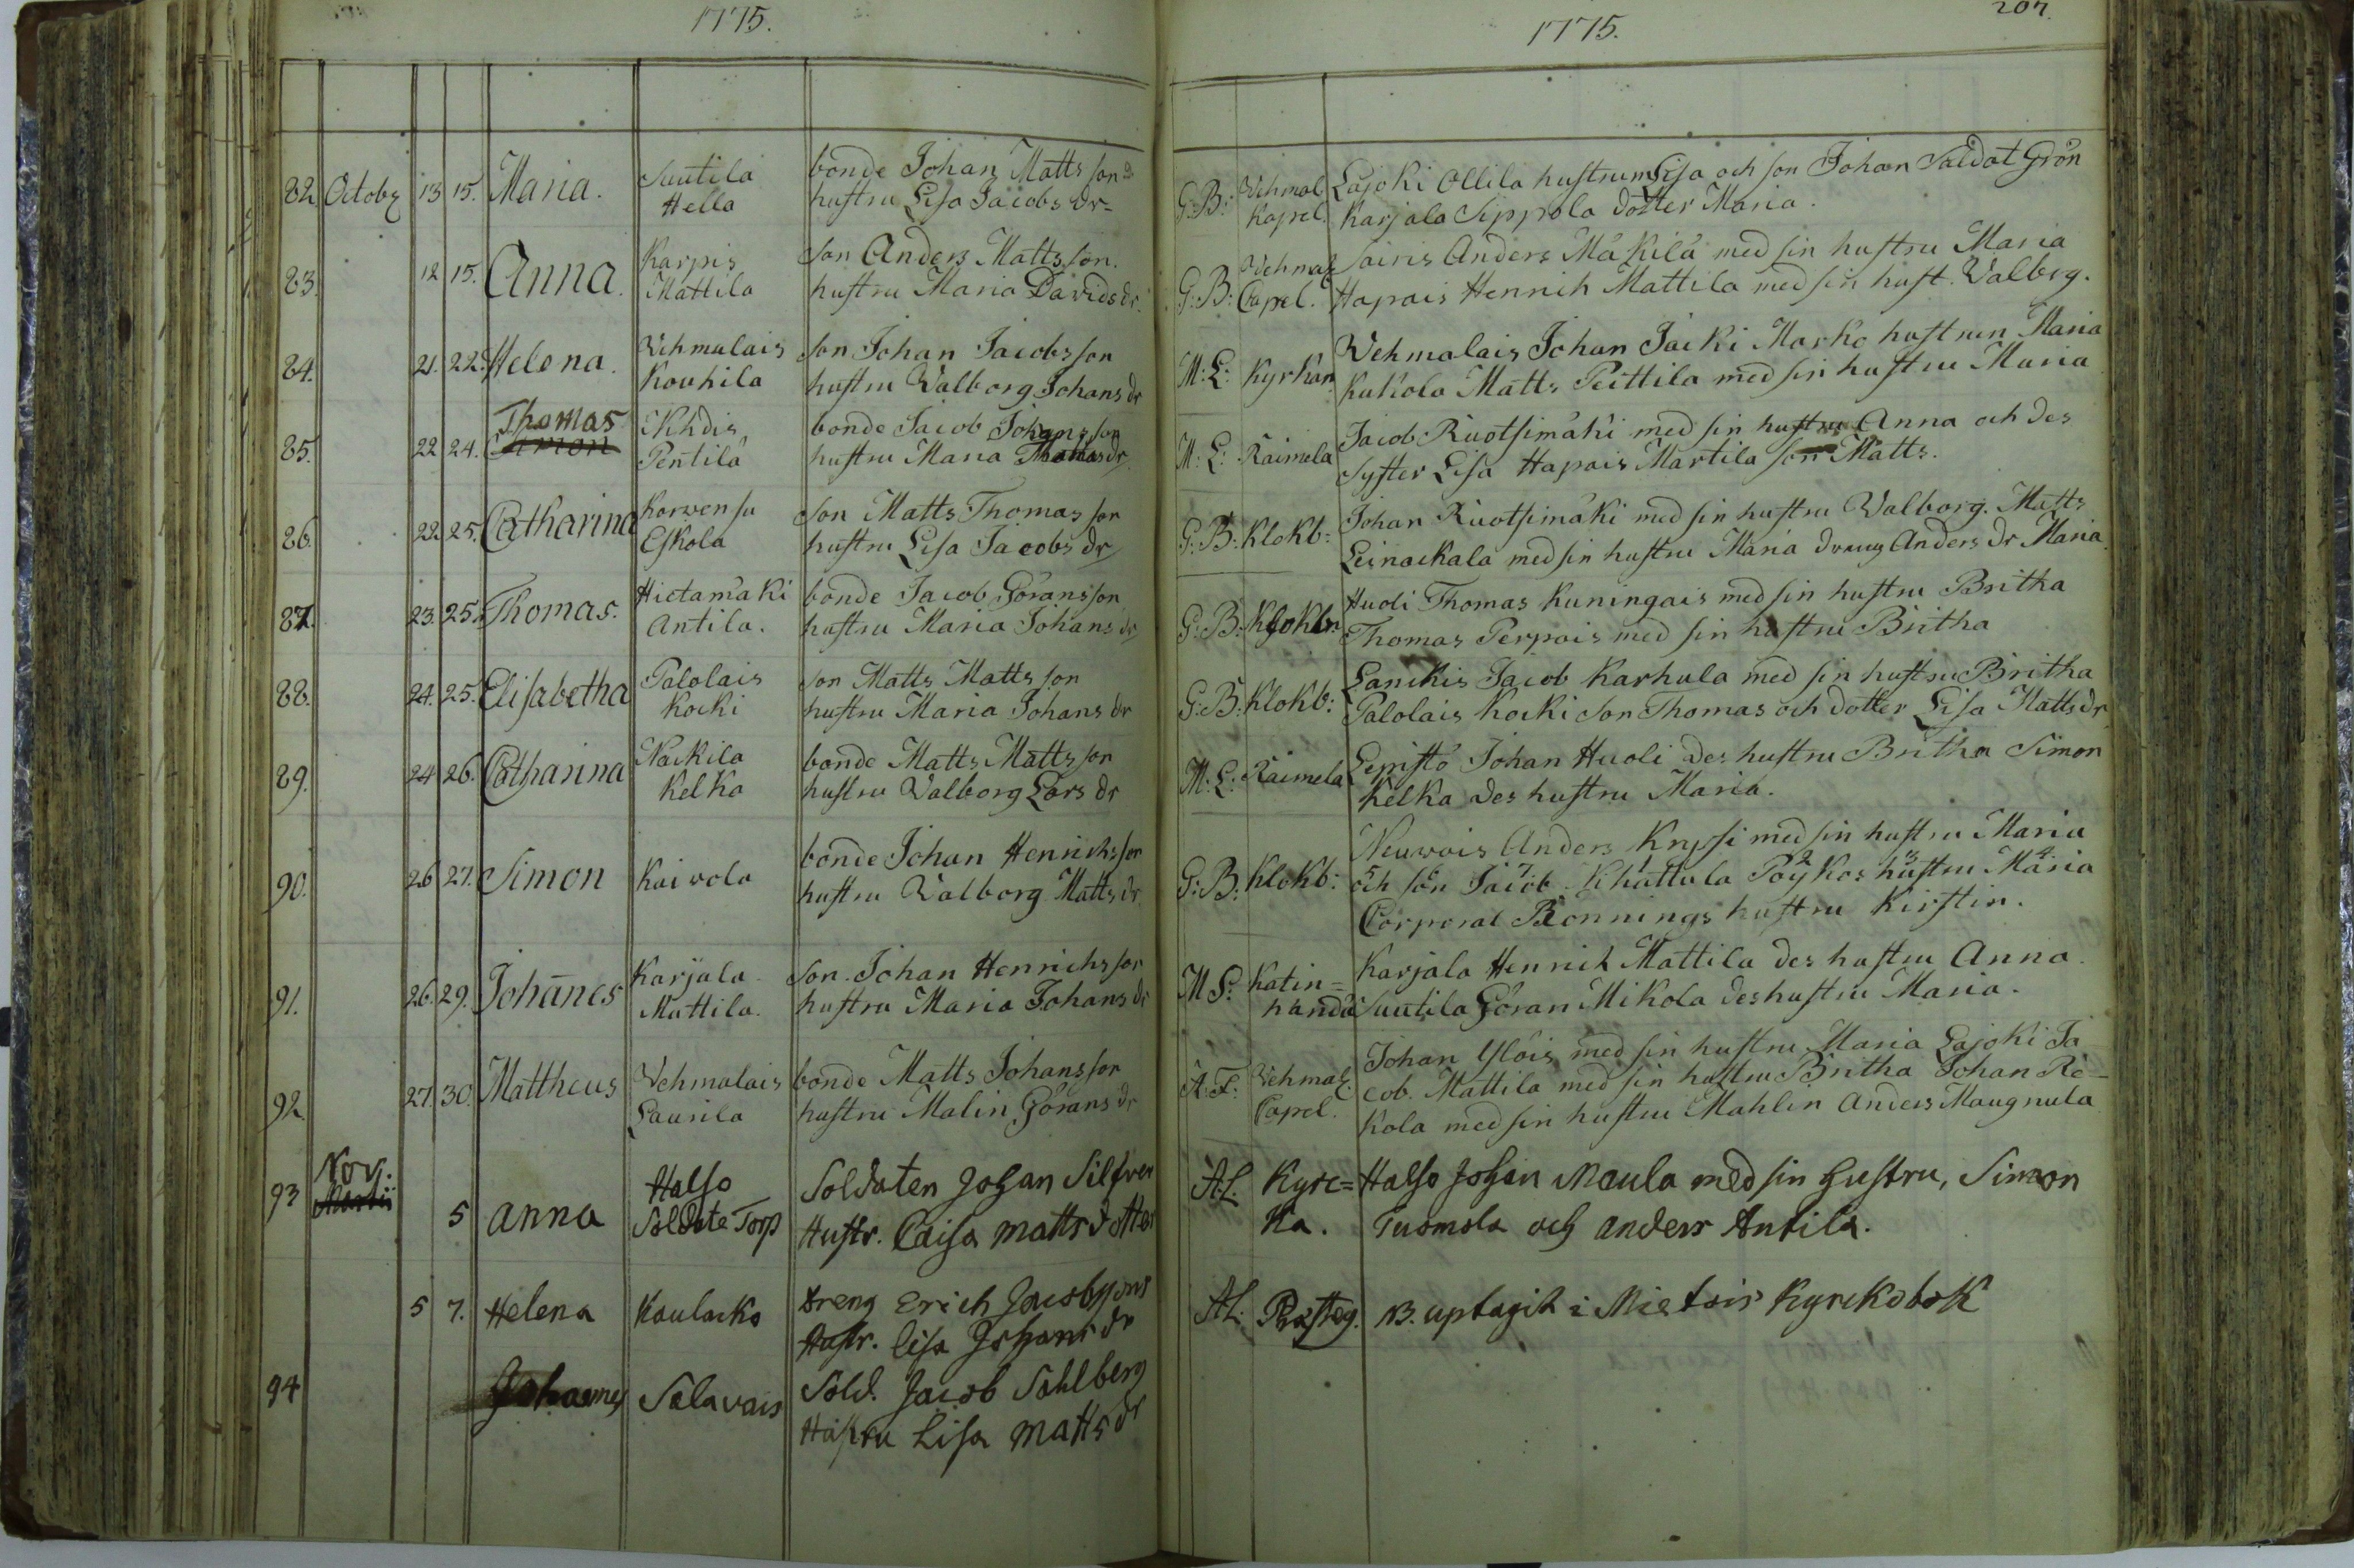 1775.
82. Octobr 13 15. Maria. Suutila bonde Johan Matts son
Hella hustru Lisa Jacobs dr
83. 12 15. Anna. Karpis Son Anders Matts son.
Mattila hustru Maria Davids dr.
84. 21. 22. Helena. Vehmalais Son Johan Jacobs son
Kouhila hustru Walborg Johans dr
Thomas
85. 22 24. Simon bonde Jacob Johans son
Pentilä hustru Maria Thomas dr
86. 22. 25. Catharina Korwensu Son Matts Thomas son
Eskola hustru Lisa Jacobs dr
87. 23. 25. Thomas. Hietamäki bonde Jacob Görans son
Antila. hustru Maria Johans dr
88. 24. 25. Elisabetha Palolais son Matts Matts son
Kocki hustru Maria Johans dr
89. 24 26. Catharina Nackila bonde Matts Matts son
Kelka hustru Walborg Lars dr
90. 26 27. Simon Kaivola bonde Johan Henrichs son
hustru Walborg Matts dr
91. 26. 29. Johanes Karjala Son Johan Henrichs son
Mattila. hustru Maria Johans dr
92. 27. 30. Mattheus Vehmalais bonde Matts Johans son
Laurila hustru Malin Görans dr
93 Nov: Martii 5 Anna Halso Soldaten Johan Silfver
Soldate Torp Hustr. Caisa Matts dotter
5 7. Helena Koulacko dreng Erich Jacobssons
Hustr. Lisa Johans dr
94 Johannes Salavais Sold. Jacob Sahlberg
Hustru Lisa Matts dr
1775. 207.
G: B: Vehmal. Lajoki Ollila hustrun Lisa och son Johan Saldat Grön
Kapel. Karjala Sippola dotter Maria.
G: B: Vehmal Sairis Anders Mäkilä med sin hustru Maria
Capel. Hapais Henrich Mattila med sin hust. Valbrg.
M: L: Kyrkan Wehmalais Johan Jacki Marko hustrun Maria
Kukola Matts Peittila med sin hustru Maria
M: L: Raimela Jacob Ruotsimäki med sin hustru Anna och des
Syster Lisa Hapais Martila son Matts.
G: B: Klokb: Johan Ruotsimäki med sin hustru Walborg. Matts
Leinackala med sin hustru Maria dreng Anders dr Maria
G: B: Klokbr: Huoli Thomas Kuningais med sin hustru Britha
Thomas Perpois med sin hustru Britha
G: B: Klokb: Lanckis Jacob Karhula med sin hustru Britha
Palolais Kocki son Thomas och dotter Lisa Matts dr
M: L: Raimela Lepistö Johan Huoli des hustru Britha Simon
Kelka des hustru Maria.
G: B: Klokb: Neuvois Anders Knysi med sin hustru Maria
och son Jacob Khattula Pöykos hustru Maria
Corporal Bonnings hustru Kirstin.
M S: Katin= Karjala Henrich Mattila des hustru Anna.
handa Suutila Göran Mikola des hustru Maria.
A: F: Vehmal. Johan Ylöis med sin hustru Maria Lajoki Ja
Capel. cob. Mattila med sin hustru Britha Johan Re-
kola med sin hustru Mahlin Anders Maugnula
A.L. Kyrc= Halso Johan Maula med sin hustru, Simon
ka. Tuomola och Anders Antila.
A.L. Prästeg. B. uptagit i Mietois Kyrckobok